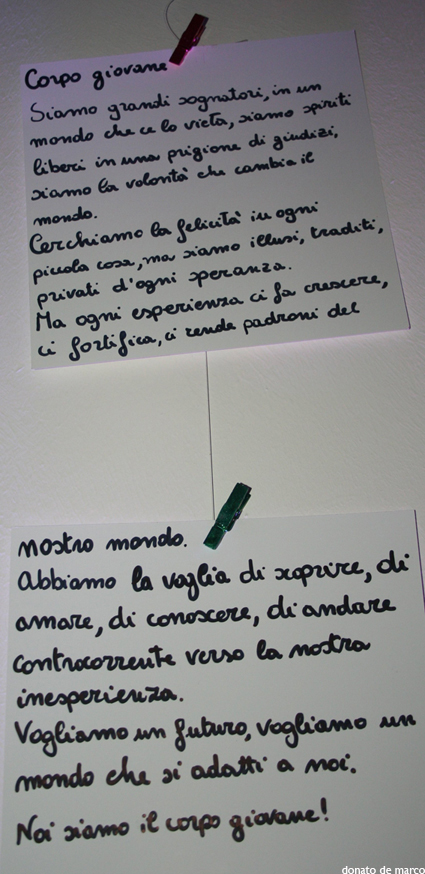 Corpo giovane
Siamo grandi sognatori, in un
mondo che ce lo vieta, siamo spiriti
liberi in una prigione di giudizi,
siamo la volontà che cambia il
mondo.
Cerchiamo la felicità in ogni
piccola cosa, ma siamo illusi, traditi,
privati d'ogni speranza.
Ma ogni esperienza ci fa crescere,
ci fortifica, ci rende padroni del
nostro mondo.
Abbiamo la voglia di scoprire, di
amare, di conoscere, di andare
controcorrente verso la nostra
inesperienza.
Vogliamo un futuro, vogliamo un
mondo che si adatti a noi.
Noi siamo il corpo giovane!
donato de marco